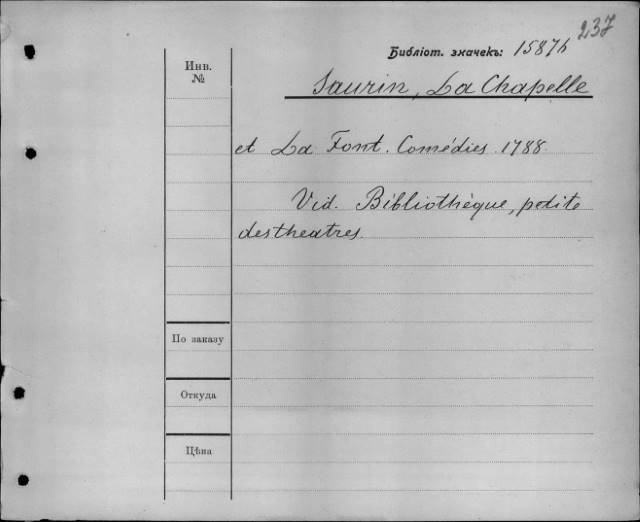 237
Библіот. значекъ: 1587b
Инв.
№
Saurin, La Chapelle
et La Font. Comédies. 1788.
Vid. Bibliothèque, petite
des theatres.
По заказу
Откуда
Цѣна